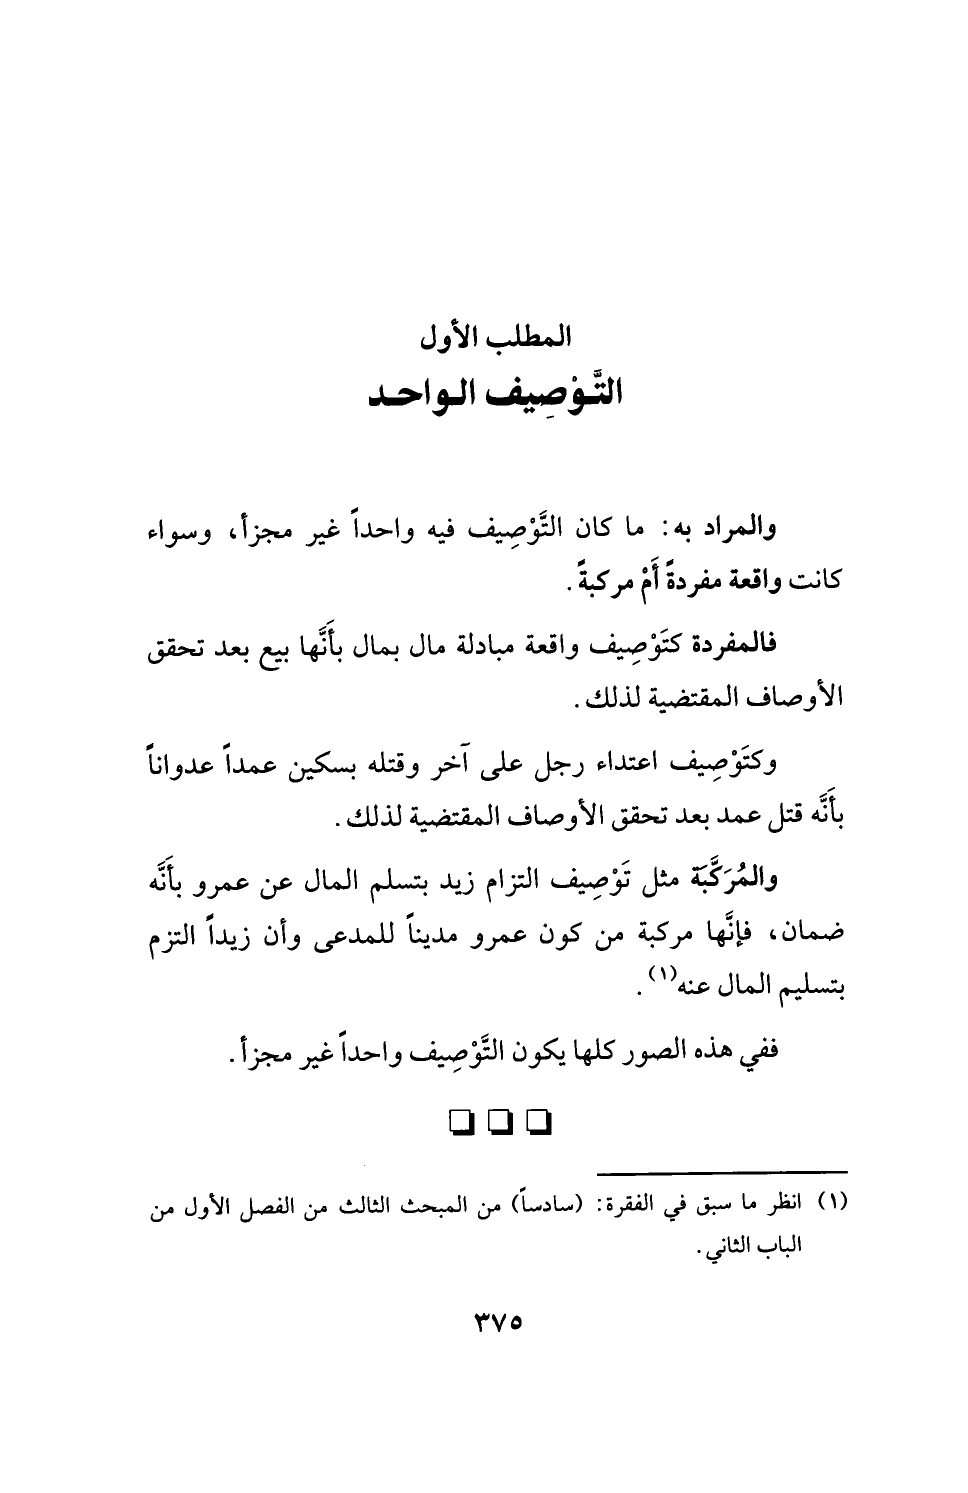 المطلب الأول
التَّوْصِيف الواحد
والمراد به: ما كان التَّوْصِيف فيه واحداً غير مجزأ، وسواء
كانت واقعة مفردةً أَمْ مركبةً.
فالمفردة كتَوْصِيف واقعة مبادلة مال بمال بأَنَّها بيع بعد تحقق
الأوصاف المقتضية لذلك.
وكتَوْصِيف اعتداء رجل على آخر وقتله بسكين عمداً عدواناً
بأَنَّه قتل عمد بعد تحقق الأوصاف المقتضية لذلك.
والمُرَكَّبَة مثل تَوْصِيف التزام زيد بتسلم المال عن عمرو بأَنَّه
ضمان، فإنَّها مركبة من كون عمرو مديناً للمدعى وأن زيداً التزم
بتسليم المال عنه(١).
ففي هذه الصور كلها يكون التَّوْصِيف واحداً غير مجزأ.
(١) انظر ما سبق في الفقرة: (سادساً) من المبحث الثالث من الفصل الأول من
الباب الثاني.
٣٧٥